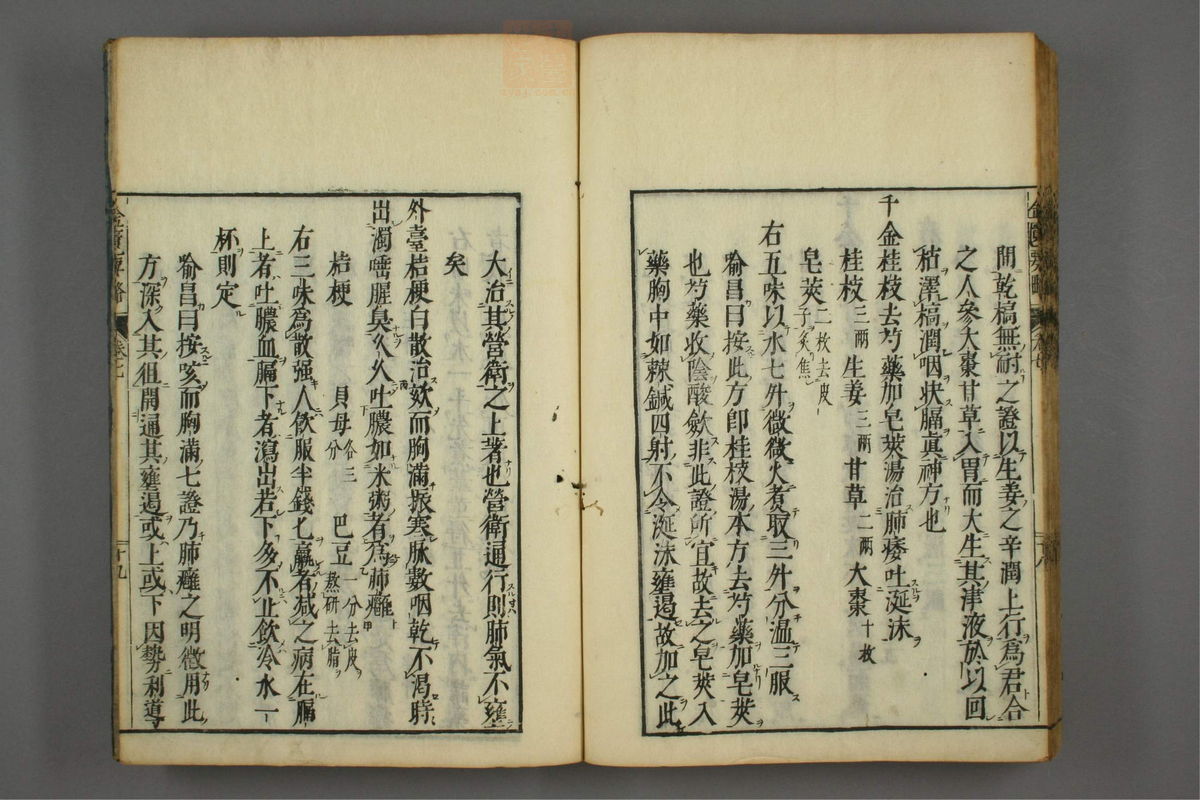 間乾槁無耐之證以生姜之辛潤上行爲君合
之人參大棗甘草入胃而大生其津液於以回
枯澤槁潤咽狀膈眞神方也
千金桂枝去芍藥加皂莢湯治肺痿吐涎沫
桂枝三兩 生姜三兩 甘草二兩 大棗十枚
皂莢二枚去皮子炙焦
右五味以水七升微微火煮取三升分温三服
喻昌曰按此方卽桂枝湯本方去芍藥加皂莢
也芍藥收陰酸斂非此證所宜故去之皂莢入
藥胸中如棘鍼四射不令涎沫壅遏故加之此
大治其營衛之上著也營衛通行則肺氣不壅
矣
外臺桔梗白散治欬而胸滿振寒脉數咽乾不渴時
出濁唾腥臭久久吐膿如米粥者爲肺癰
桔梗 貝母各三分 巴豆一分去皮熬研去脂
右三味爲散强人飲服半錢匕羸者减之病在膈
上者吐膿血膈下者瀉出若下多不止飲冷水一
杯則定
喻昌曰按咳而胸滿七證乃肺癰之明徵用此
方深入其徂開通其壅遏或上或下因勢利導
十九